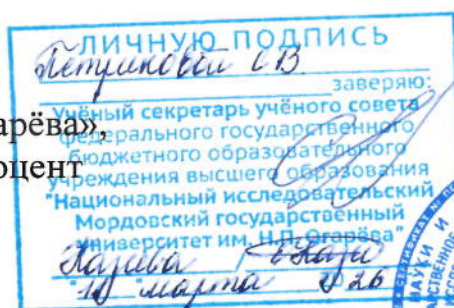 ЛИЧНУЮ ПОДПИСЬ
Петруновой С В
заверяю:
Учёный секретарь учёного совета
арёва»,
федерального государственного
бюджетного образовательного
оцент
учреждения высшего образования
"Национальный исследовательский
Мордовский государственный
университет им. Н.П. Огарёва"
марта 26
СЕРТИФИКАТ №
НАУКИ И